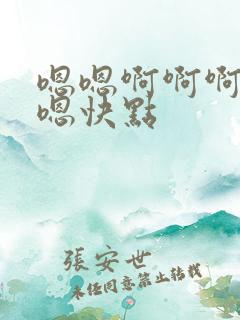 嗯嗯啊啊啊
嗯快點
張安世
未经同意禁止转载